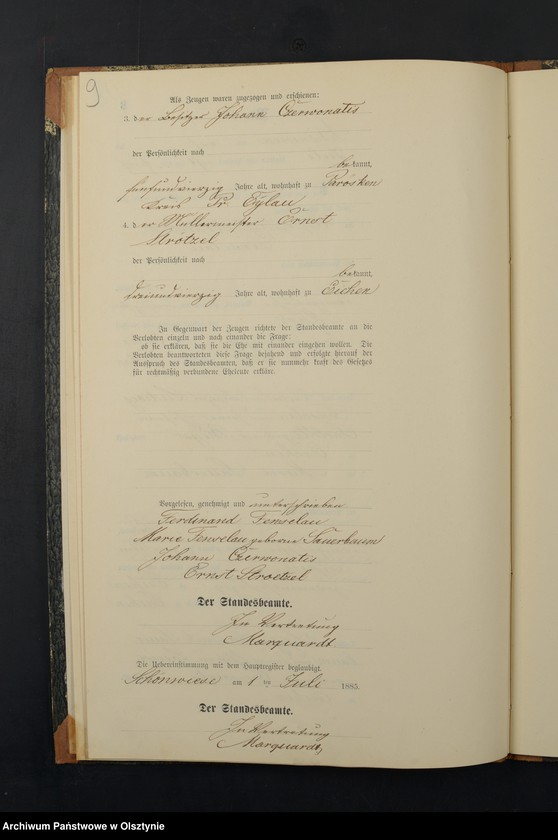 9
Als Zeugen waren zugezogen und erschienen:
3. der Besitzer Johann Czerwonatis
der Persönlichkeit nach
bekannt,
fünfundvierzig Jahre alt, wohnhaft zu Parösken
Kreis Pr. Eylau
4. der Müllermeister Ernst
Strötzel
der Persönlichkeit nach
bekannt,
dreiundvierzig Jahre alt, wohnhaft zu Eichen
In Gegenwart der Zeugen richtete der Standesbeamte an die
Verlobten einzeln und nach einander die Frage:
ob sie erklären, daß sie die Ehe mit einander eingehen wollen. Die
Verlobten beantworteten diese Frage bejahend und erfolgte hierauf der
Ausspruch des Standesbeamten, daß er sie nunmehr kraft des Gesetzes
für rechtmäßig verbundene Eheleute erkläre.
Vorgelesen, genehmigt und unterschrieben
Ferdinand Fenselau
Marie Fenselau geborene Sauerbaum
Johann Czerwonatis
Ernst Stroetzel
Der Standesbeamte.
In Vertretung
Marquardt
Die Uebereinstimmung mit dem Hauptregister beglaubigt.
Schönwiese am 1 ten Juli 1885.
Der Standesbeamte.
In Vertretung
Marquardt
Archiwum Państwowe w Olsztynie